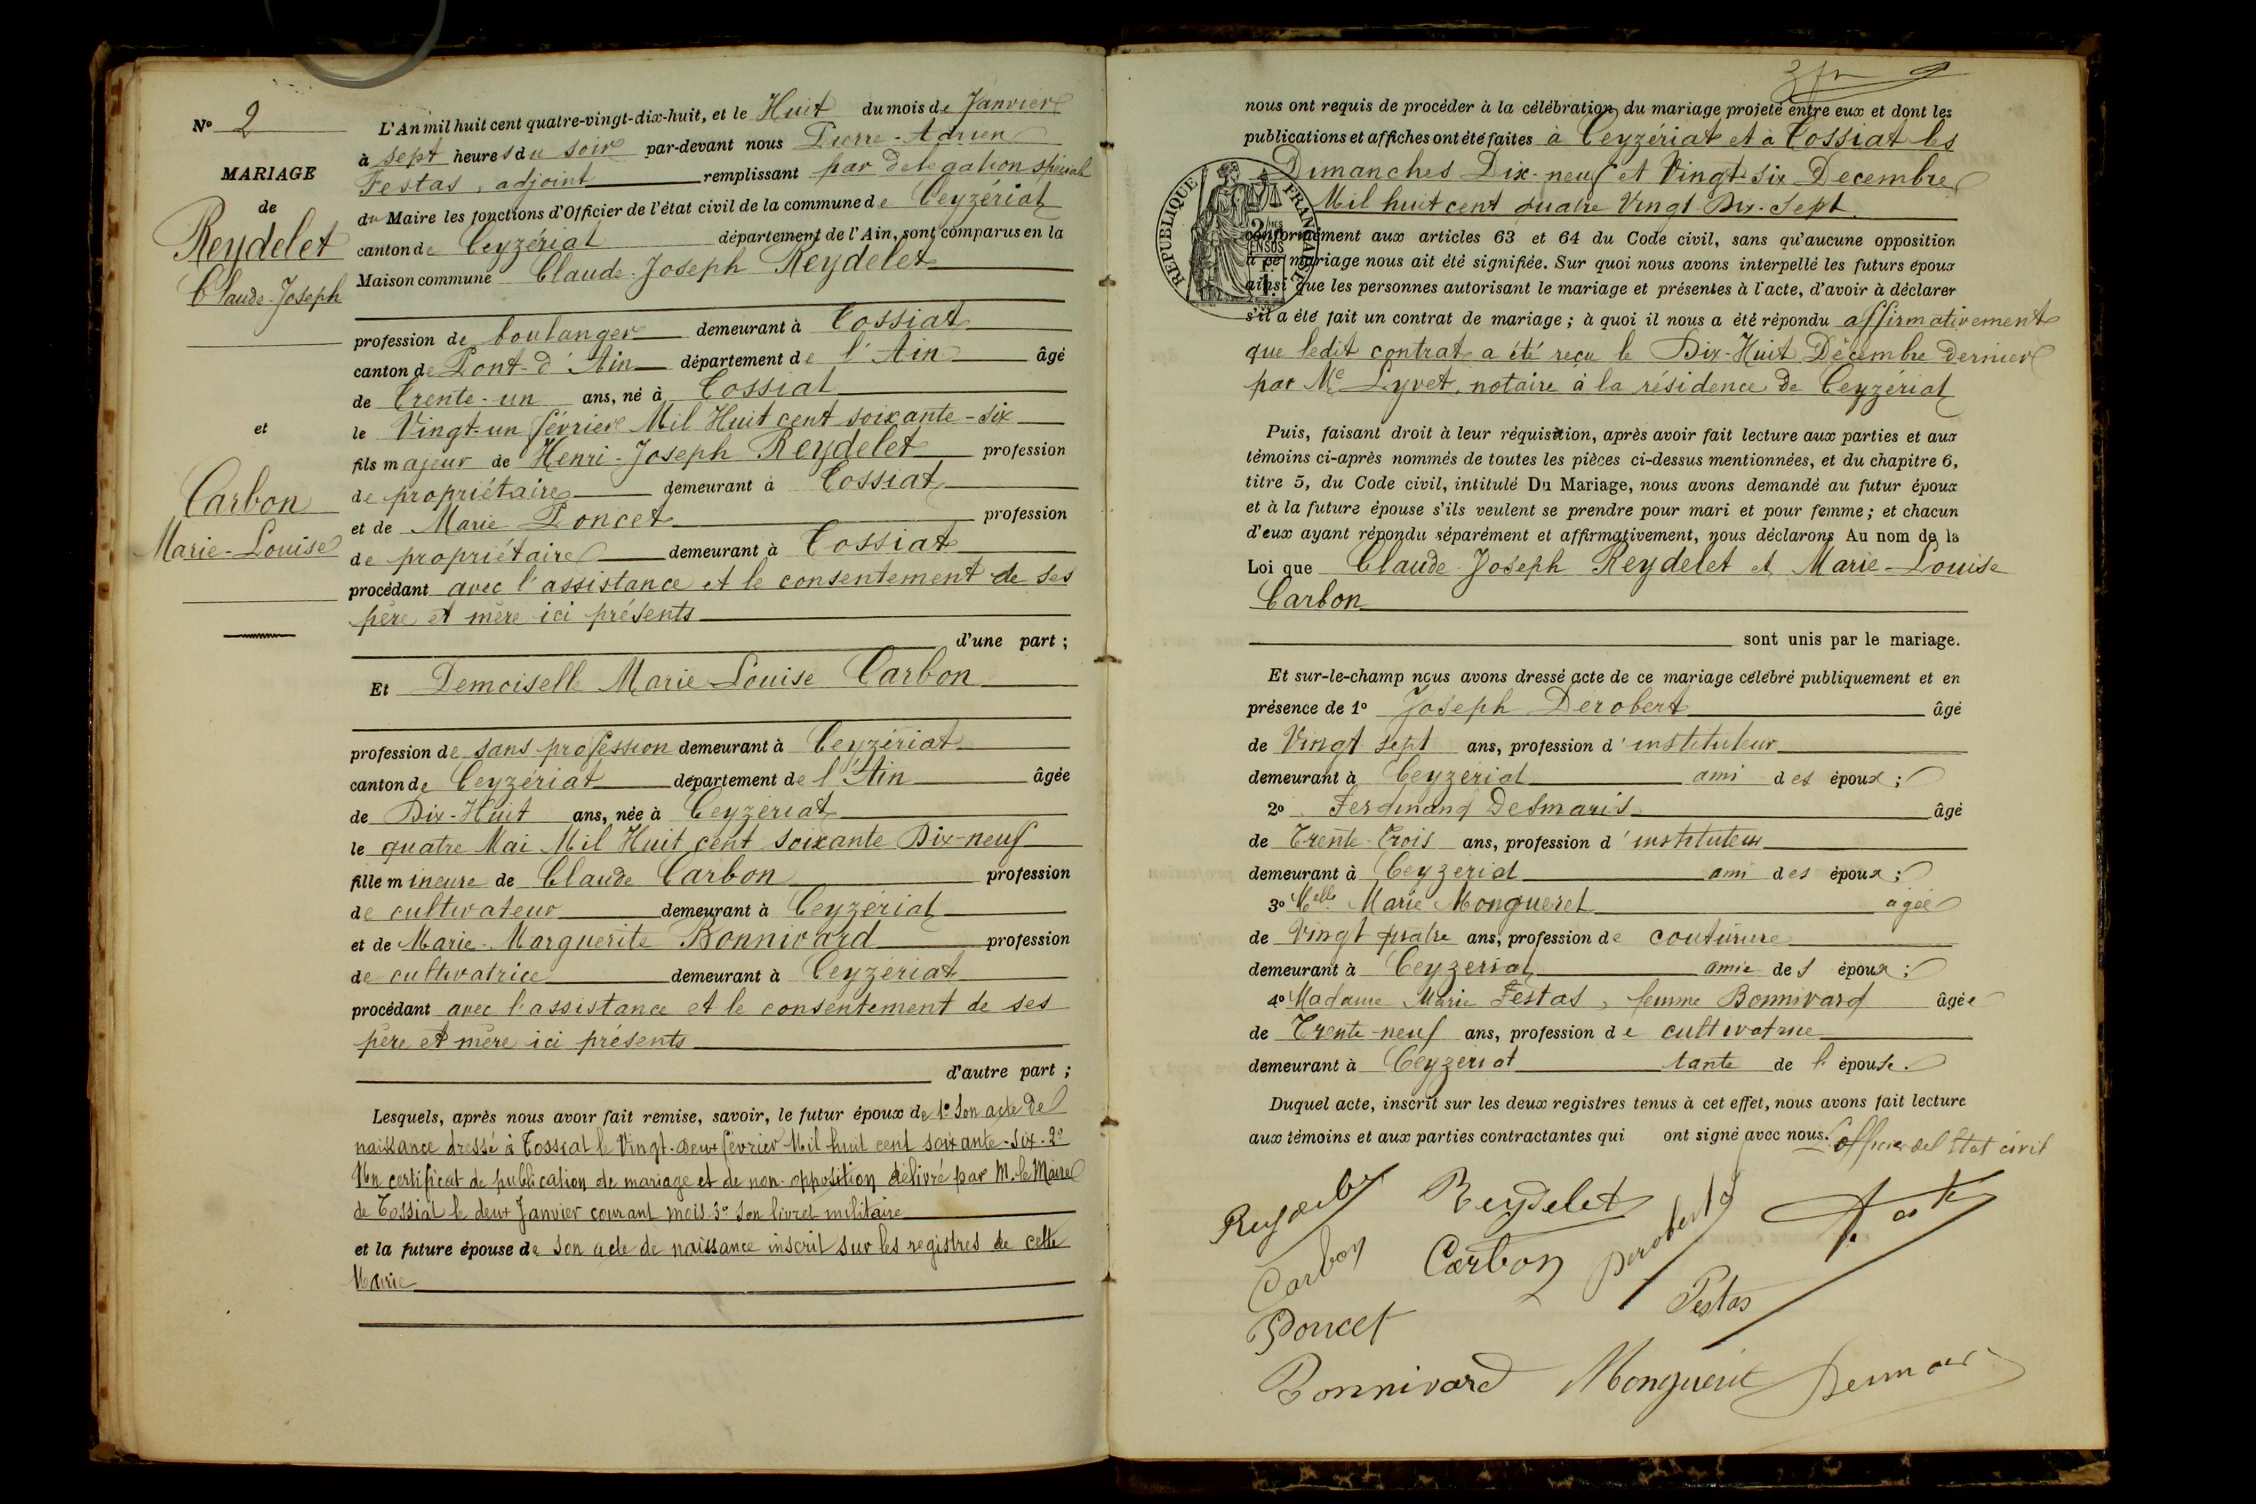 N° 2
MARIAGE
de
Reydelet
Claude-Joseph
et
Carbon
Marie-Louise
L'An mil huit cent quatre-vingt-dix-huit, et le Huit du mois de Janvier
à sept heures du soir par-devant nous Pierre-Adrien
Festas, adjoint remplissant par délégation spéciale
du Maire les fonctions d'Officier de l'état civil de la commune de Ceyzériat
canton de Ceyzériat département de l'Ain, sont comparus en la
Maison commune Claude-Joseph Reydelet
profession de boulanger demeurant à Tossiat
canton de Pont-d'Ain département de l'Ain âgé
de Trente-un ans, né à Tossiat
le Vingt-un février Mil Huit cent soixante-six
fils majeur de Henri-Joseph Reydelet profession
de propriétaire demeurant à Tossiat
et de Marie Poncet profession
de propriétaire demeurant à Tossiat
procédant avec l'assistance et le consentement de ses
père et mère ici présents
d'une part ;
Et Demoiselle Marie-Louise Carbon
profession de sans profession demeurant à Ceyzériat
canton de Ceyzériat département de l'Ain âgée
de Dix-Huit ans, née à Ceyzériat
le quatre Mai Mil Huit cent soixante Dix-neuf
fille mineure de Claude Carbon profession
de cultivateur demeurant à Ceyzériat
et de Marie-Marguerite Bonnivard profession
de cultivatrice demeurant à Ceyzériat
procédant avec l'assistance et le consentement de ses
père et mère ici présents
d'autre part ;
Lesquels, après nous avoir fait remise, savoir, le futur époux de 1° Son acte de
naissance dressé à Tossiat le Vingt-deux février Mil huit cent soixante-six - 2°
Un certificat de publication de mariage et de non-opposition délivré par M. le Maire
de Tossiat le deux Janvier courant mois 3° Son livret militaire
et la future épouse de Son acte de naissance inscrit sur les registres de cette
Mairie
3 fr
nous ont requis de procéder à la célébration du mariage projeté entre eux et dont les
publications et affiches ont été faites à Ceyzériat et à Tossiat les
Dimanches Dix-neuf et Vingt-six Decembre
Mil huit cent quatre Vingt Dix-Sept
RÉPUBLIQUE FRANÇAISE
conformément aux articles 63 et 64 du Code civil, sans qu'aucune opposition
à ce mariage nous ait été signifiée. Sur quoi nous avons interpellé les futurs époux
ainsi que les personnes autorisant le mariage et présentes à l'acte, d'avoir à déclarer
s'il a été fait un contrat de mariage ; à quoi il nous a été répondu affirmativement
que ledit contrat a été reçu le Dix-Huit Décembre dernier
par Me Lyvet, notaire à la résidence de Ceyzériat
Puis, faisant droit à leur réquisition, après avoir fait lecture aux parties et aux
témoins ci-après nommés de toutes les pièces ci-dessus mentionnées, et du chapitre 6,
titre 5, du Code civil, intitulé Du Mariage, nous avons demandé au futur époux
et à la future épouse s'ils veulent se prendre pour mari et pour femme ; et chacun
d'eux ayant répondu séparément et affirmativement, nous déclarons Au nom de la
Loi que Claude-Joseph Reydelet et Marie-Louise
Carbon
sont unis par le mariage.
Et sur-le-champ nous avons dressé acte de ce mariage célébré publiquement et en
présence de 1° Joseph Derobert âgé
de Vingt sept ans, profession d'instituteur
demeurant à Ceyzériat ami des époux ;
2° Ferdinand Desmaris âgé
de Trente-Trois ans, profession d'instituteur
demeurant à Ceyzériat ami des époux ;
3° Melle Marie Mongueret âgée
de Vingt quatre ans, profession de couturière
demeurant à Ceyzériat amie des époux ;
4° Madame Marie Festas, femme Bonnivard âgée
de Trente-neuf ans, profession de cultivatrice
demeurant à Ceyzériat tante de l'épouse.
Duquel acte, inscrit sur les deux registres tenus à cet effet, nous avons fait lecture
aux témoins et aux parties contractantes qui ont signé avec nous. L'officier de l'Etat civil
Reydelet Reydelet
Carbon Carbon Derobert
Poncet Festas
Bonnivard Mongueret